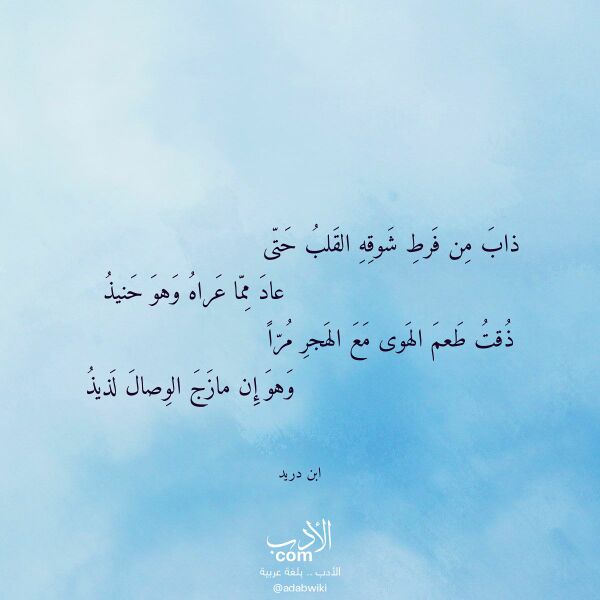 ذابَ مِن فَرطِ شَوقِهِ القَلبُ حَتّى
عادَ مِمّا عَراهُ وَهوَ حَنيذُ
ذُقتُ طَعمَ الهَوى مَعَ الهَجرِ مُرّاً
وَهوَ إِن مازَجَ الوِصالَ لَذيذُ
ابن دريد
الأدب
com
الأدب .. بلغة عربية
@adabwiki